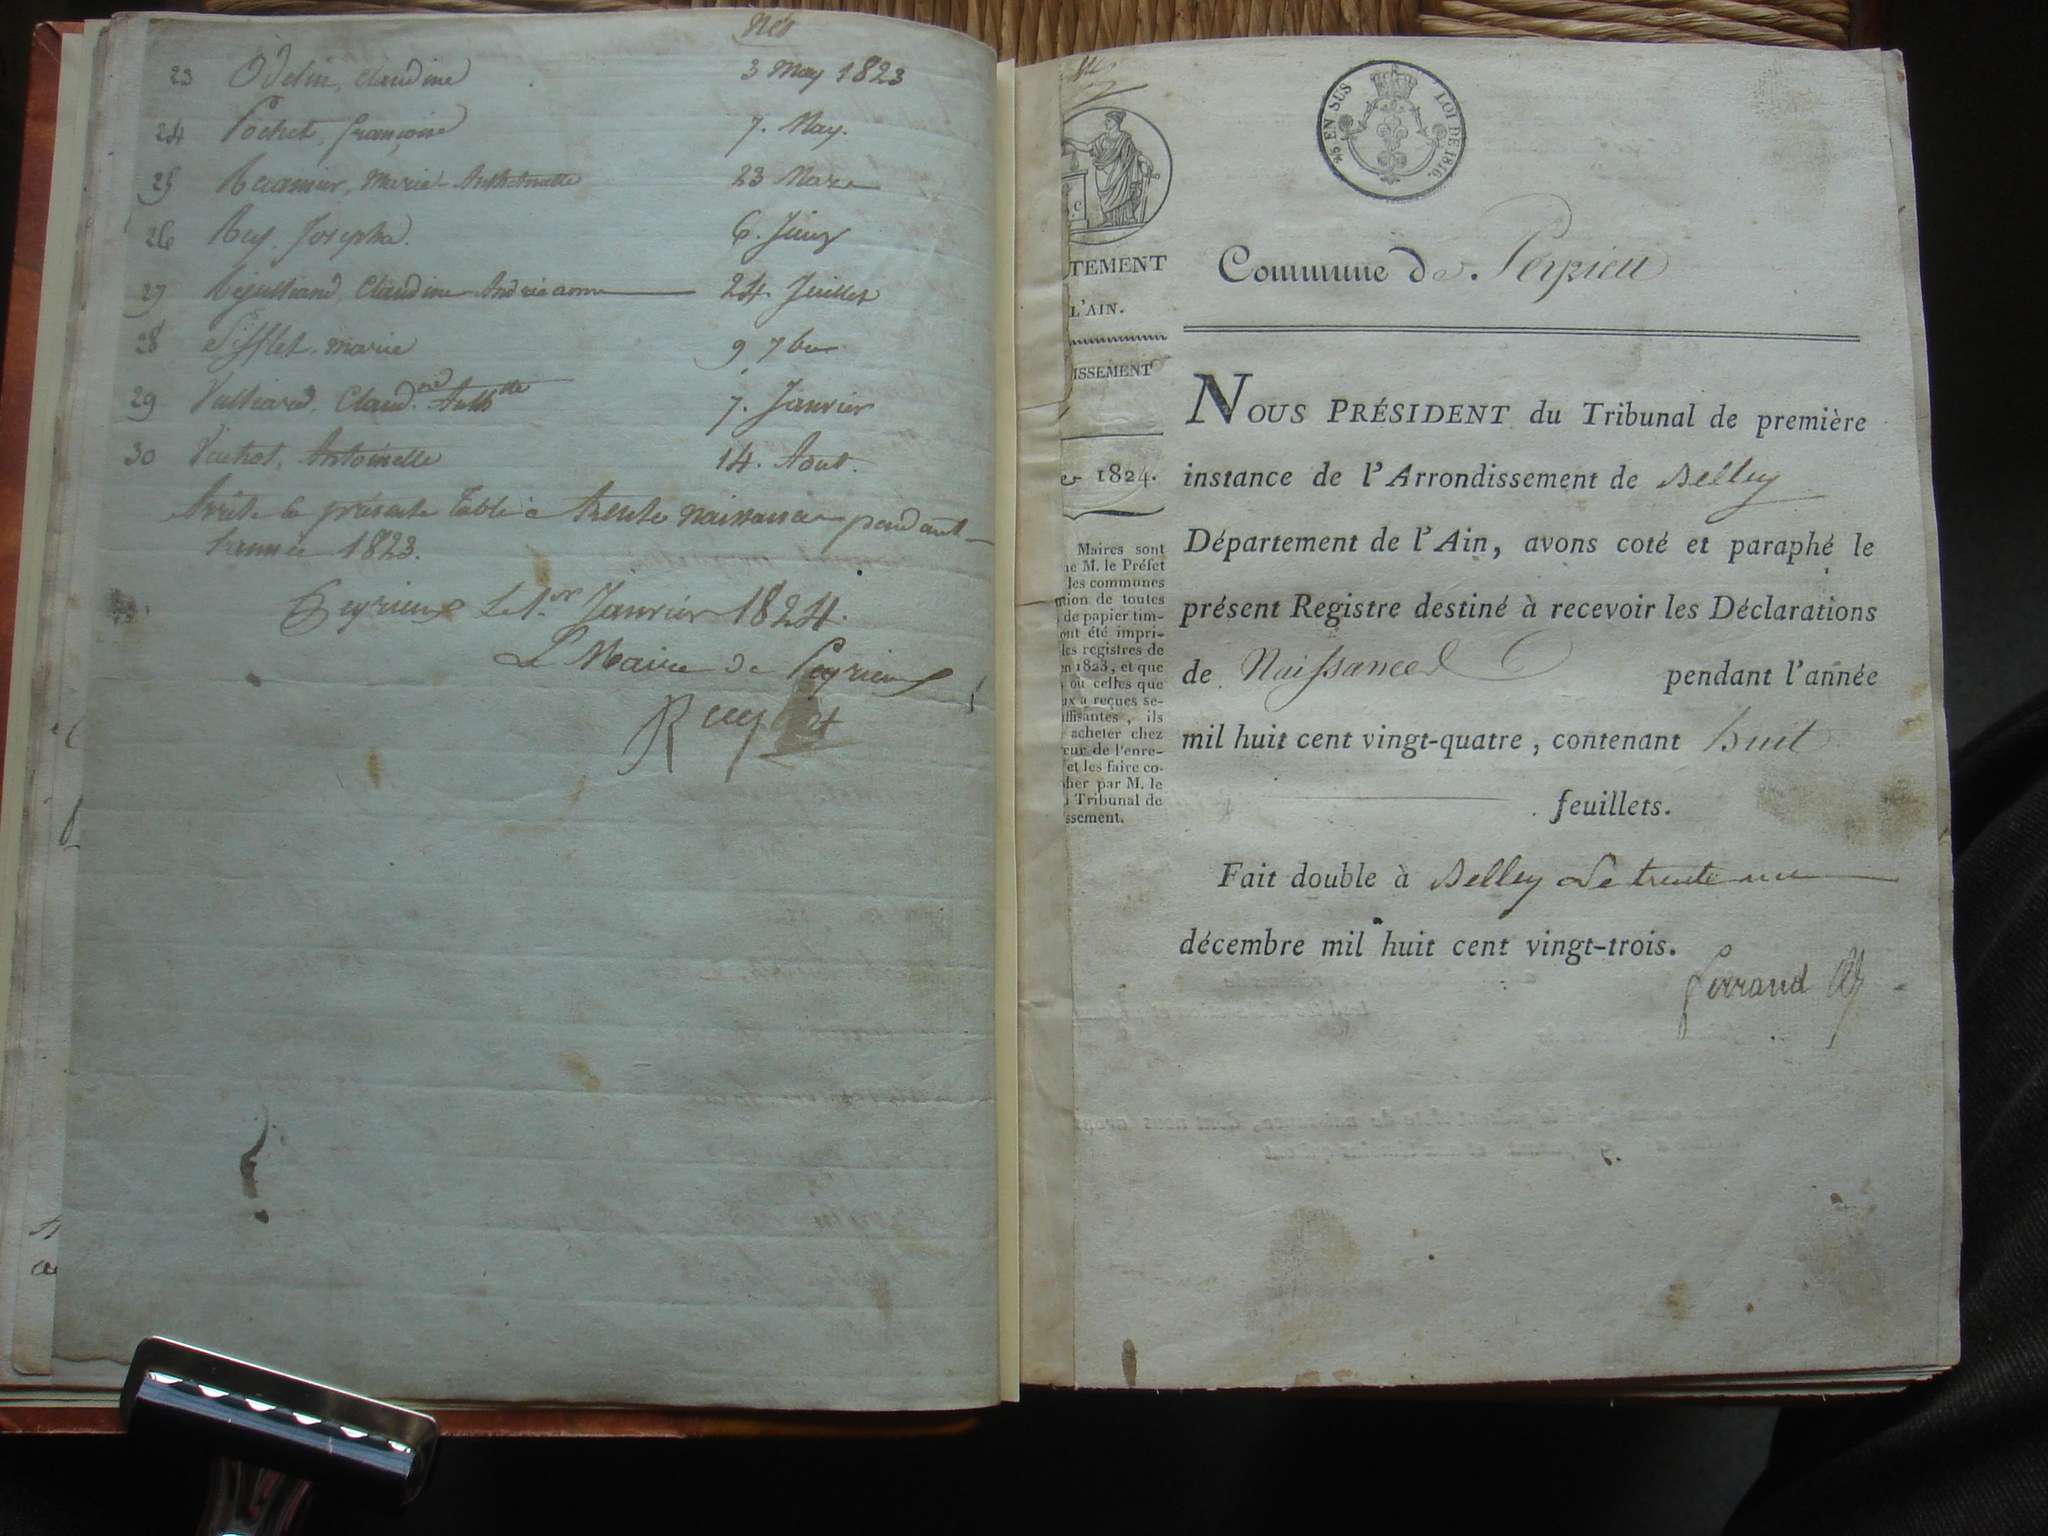 Nés
23 Odelin, Claudine 3 May 1823
24 Pochet, françoise 7. May.
25 Marie Anthoinette 23 Mars
26 Rey, Josepha. 6. Juin
27 Claudine Andrieanne 24. Juillet
28 Sifflet, marie 9 7bre
29 Vulliard, Claud.ne Anth.tte 7. Janvier
30 Vuchot, Antoinette 14. Aout.
Arrêté la présente Table à trente naissances pendant
l'année 1823.
Peyrieux le 1.er Janvier 1824.
Le Maire de Peyrieux
45 EN SUS LOI DE 1816.
TEMENT
L'AIN.
ISSEMENT
1824.
Maires sont
M. le Préfet
les communes
tion de toutes
de papier tim-
ont été impri-
les registres de
1823, et que
ou celles que
ux a reçues se-
ffisantes, ils
acheter chez
eur de l'enre-
et les faire co-
pher par M. le
Tribunal de
ssement.
Commune de Peyrieu
NOUS PRÉSIDENT du Tribunal de première
instance de l'Arrondissement de Belley
Département de l'Ain, avons coté et paraphé le
présent Registre destiné à recevoir les Déclarations
de Naissances pendant l'année
mil huit cent vingt-quatre, contenant huit
feuillets.
Fait double à Belley le trente un
décembre mil huit cent vingt-trois.
ferrand